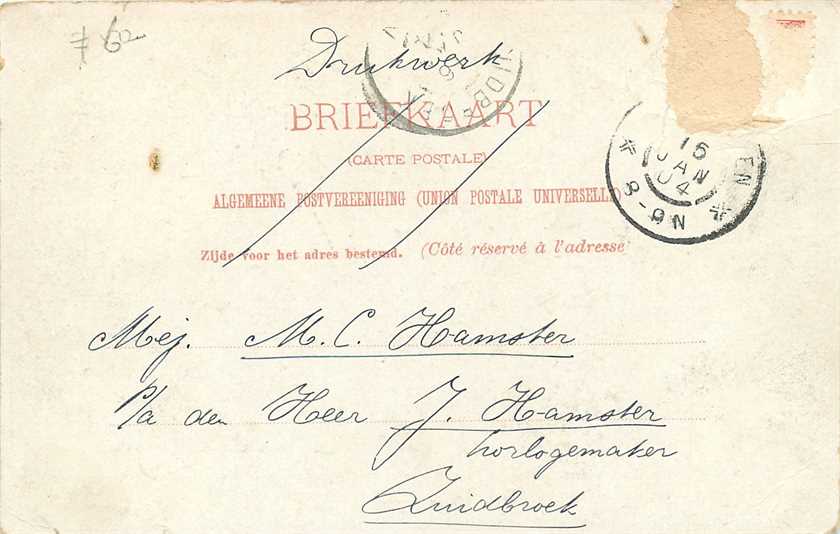 # 60
Drukwerk
BRIEFKAART
(CARTE POSTALE)
ALGEMEENE POSTVEREENIGING (UNION POSTALE UNIVERSELLE)
Zijde voor het adres bestemd. (Côté réservé à l'adresse
15
JAN
04
8-9N
EN
Mej. M. C. Hamster
p/a den Heer J. Hamster
horlogemaker
Zuidbroek